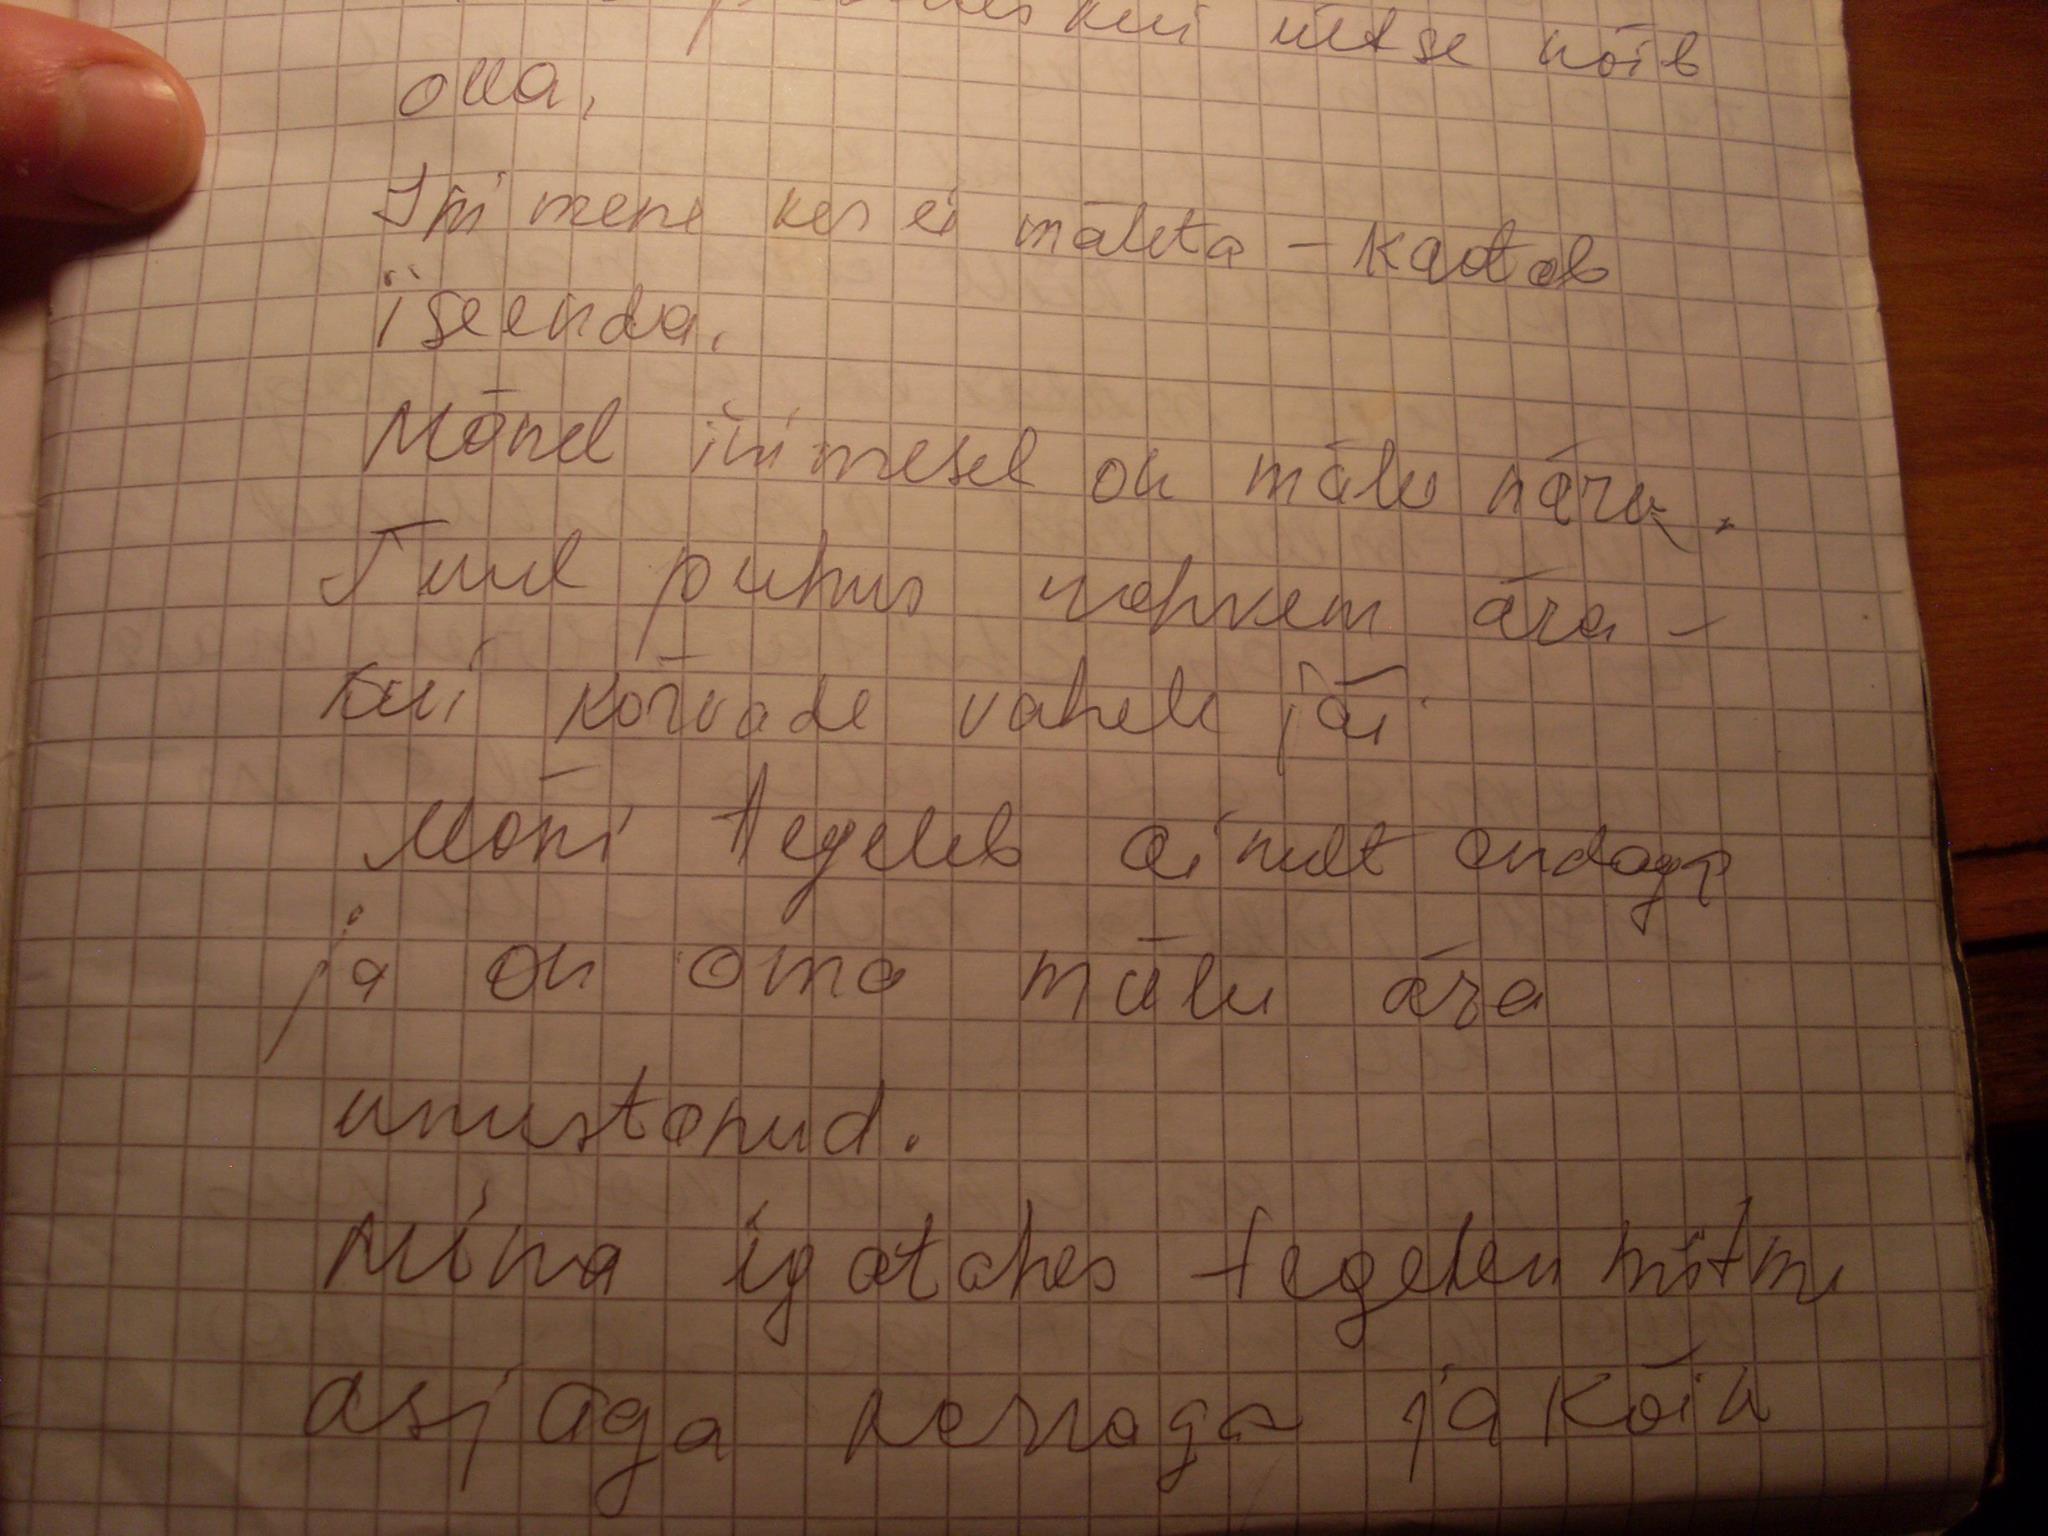 kui üldse võib
olla.
Inimene kes ei mäleta - kaotab
iseenda.
Mõnel inimesel on mälu nära.
Tuul puhus rohkem ära -
kui kõrvade vahele jäi.
Mõni tegeleb ainult endaga
ja on oma mälu ära
unustanud.
Mina igatahes tegelen mitme
asjaga korraga ja kõik